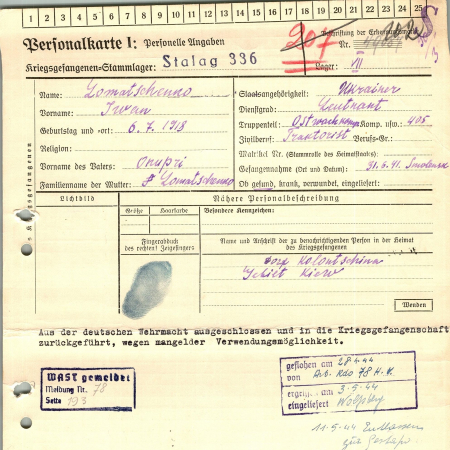 1 2 3 4 5 6 7 8 9 10 11 12 13 14 15 16 17 18 19 20 21 22 23 24 25
Personalkarte I: Personelle Angaben
Kriegsgefangenen-Stammlager: Stalag 336
207
Beschriftung der Erkennungsmarke
Nr.
Lager: VII
Name: Lomatschenko
Vorname: Iwan
Geburtstag und -ort: 6.7.1918
Religion:
Vorname des Vaters: Onupri
Familienname der Mutter: Lomatschenko
Staatsangehörigkeit: Ukrainer
Dienstgrad: Leutnant
Truppenteil: Komp. usw.: 405
Zivilberuf: Traktorist Berufs-Gr.:
Matrikel Nr. (Stammrolle des Heimatstaats):
Gefangennahme (Ort und Datum): 31.6.41. Smolensk
Ob gesund, krank, verwundet, eingeliefert:
des Kriegsgefangenen
Lichtbild
Nähere Personalbeschreibung
Größe
Haarfarbe
Besondere Kennzeichen:
Fingerabdruck
des rechten! Zeigefingers
Name und Anschrift der zu benachrichtigenden Person in der Heimat
des Kriegsgefangenen
Dorf Kolontschina
Gebiet Kiew
Wenden
Aus der deutschen Wehrmacht ausgeschlossen und in die Kriegsgefangenschaft
zurückgeführt, wegen mangelder Verwendungsmöglichkeit.
WASt gemeldet
Meldung Nr. 78
Seite 193
geflohen am 28.4.44
von Arb. Kdo 78 H.K.
ergriffen am 3.5.44
eingeliefert
11.5.44 Entlassen
zur Gestapo.